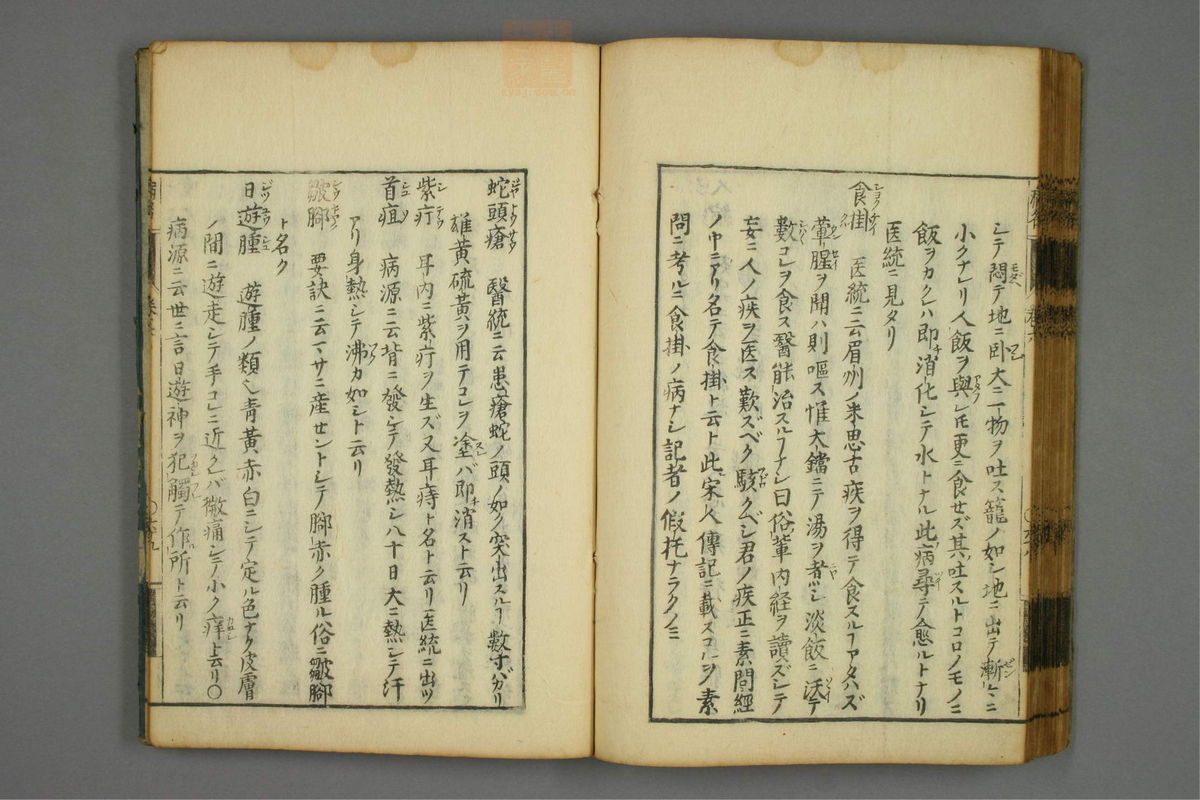 シテ悶テ地ニ卧大ニ一物ヲ吐ス籠ノ如シ地ニ出テ漸々ニ
小クナレリ人飯ヲ與レ圧更ニ食セズ其吐スルトコロノモノニ
飯ヲカクレハ即消化シテ水トナル此病尋テ愈ルトナリ
医統ニ見タリ
食掛 医統ニ云眉州ノ朱思古疾ヲ得テ食スルヿアタハズ
葷腥ヲ聞ハ則嘔ス惟大鐺ニテ湯ヲ煮シ淡飯ニ沃テ
數コレヲ食ス醫能治スルヿナシ曰俗輩内経ヲ讀ズシテ
妄ニ人ノ疾ヲ医ス歎ズベク駭クベシ君ノ疾正ニ素問經
ノ中ニアリ名テ食掛ト云ト此宋人傳記ニ載スコレヲ素
問ニ考ルニ食掛ノ病ナシ記者ノ假托ナラクノミ
蛇頭瘡 醫統ニ云患瘡蛇ノ頭ノ如ク突出スルヿ數寸バカリ
雄黃硫黃ヲ用テコレヲ塗バ即消スト云リ
紫疔 耳内ニ紫疔ヲ生ズ又耳痔ト名ト云リ医統ニ出ツ
首疽 病源ニ云背ニ發シテ發熱シ八十日大ニ熱シテ汗
アリ身熱シテ沸カ如シト云リ
皺腳 要訣ニ云マサニ産セントシテ腳赤ク腫ル俗ニ皺腳
ト名ク
日遊腫 遊腫ノ類也青黃赤白ニシテ定ル色ナク皮膚
ノ間ニ遊走シテ手コレニ近クレバ微痛シテ小ク痒ト云リ〇
病源ニ云世ニ言日遊神ヲ犯觸テ作所ト云リ